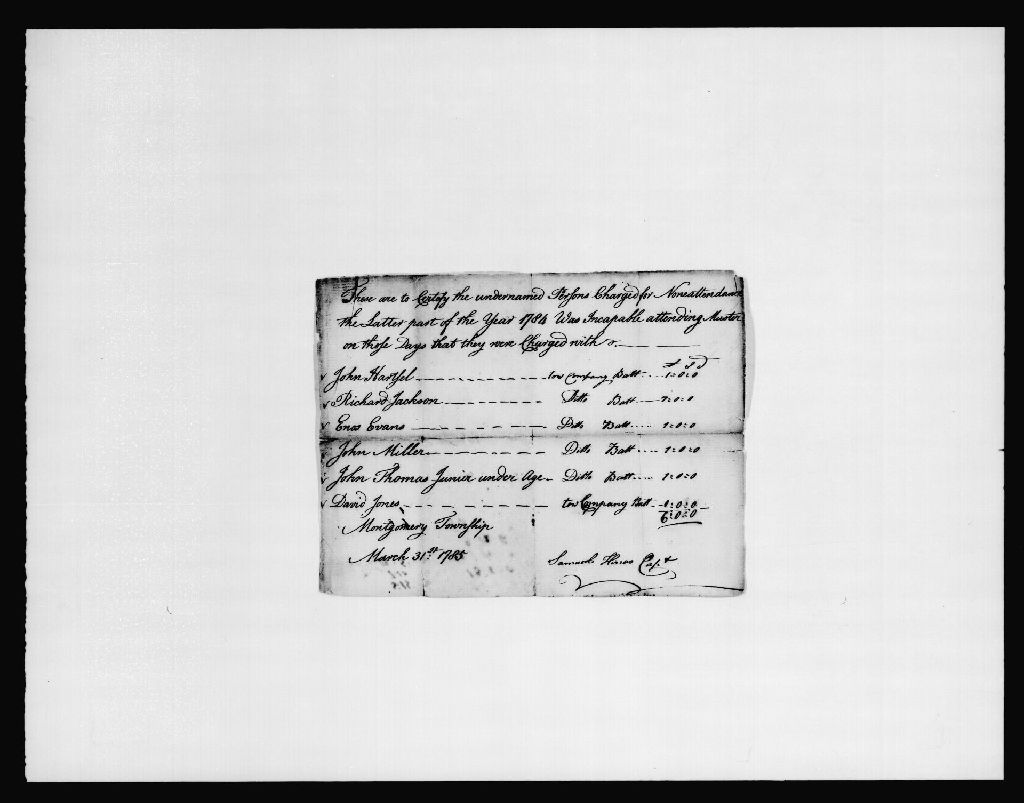 These are to Certify the undernamed Persons Charged for Noneattendance
the Latter part of the Year 1784 Was Incapable attending Muster
on those Days that they were Charged with &
£ S D
John Hartsel two Company Batt 1:0:0
Richard Jackson Ditto Batt 1:0:0
Enos Evans Ditto Batt 1:0:0
John Miller Ditto Batt 1:0:0
John Thomas Junier under Age Ditto Batt 1:0:0
David Jones two Company Batt 1:0:0
6:0:0
Montgomery Township
March 31st 1785
Samuel Hines Capt